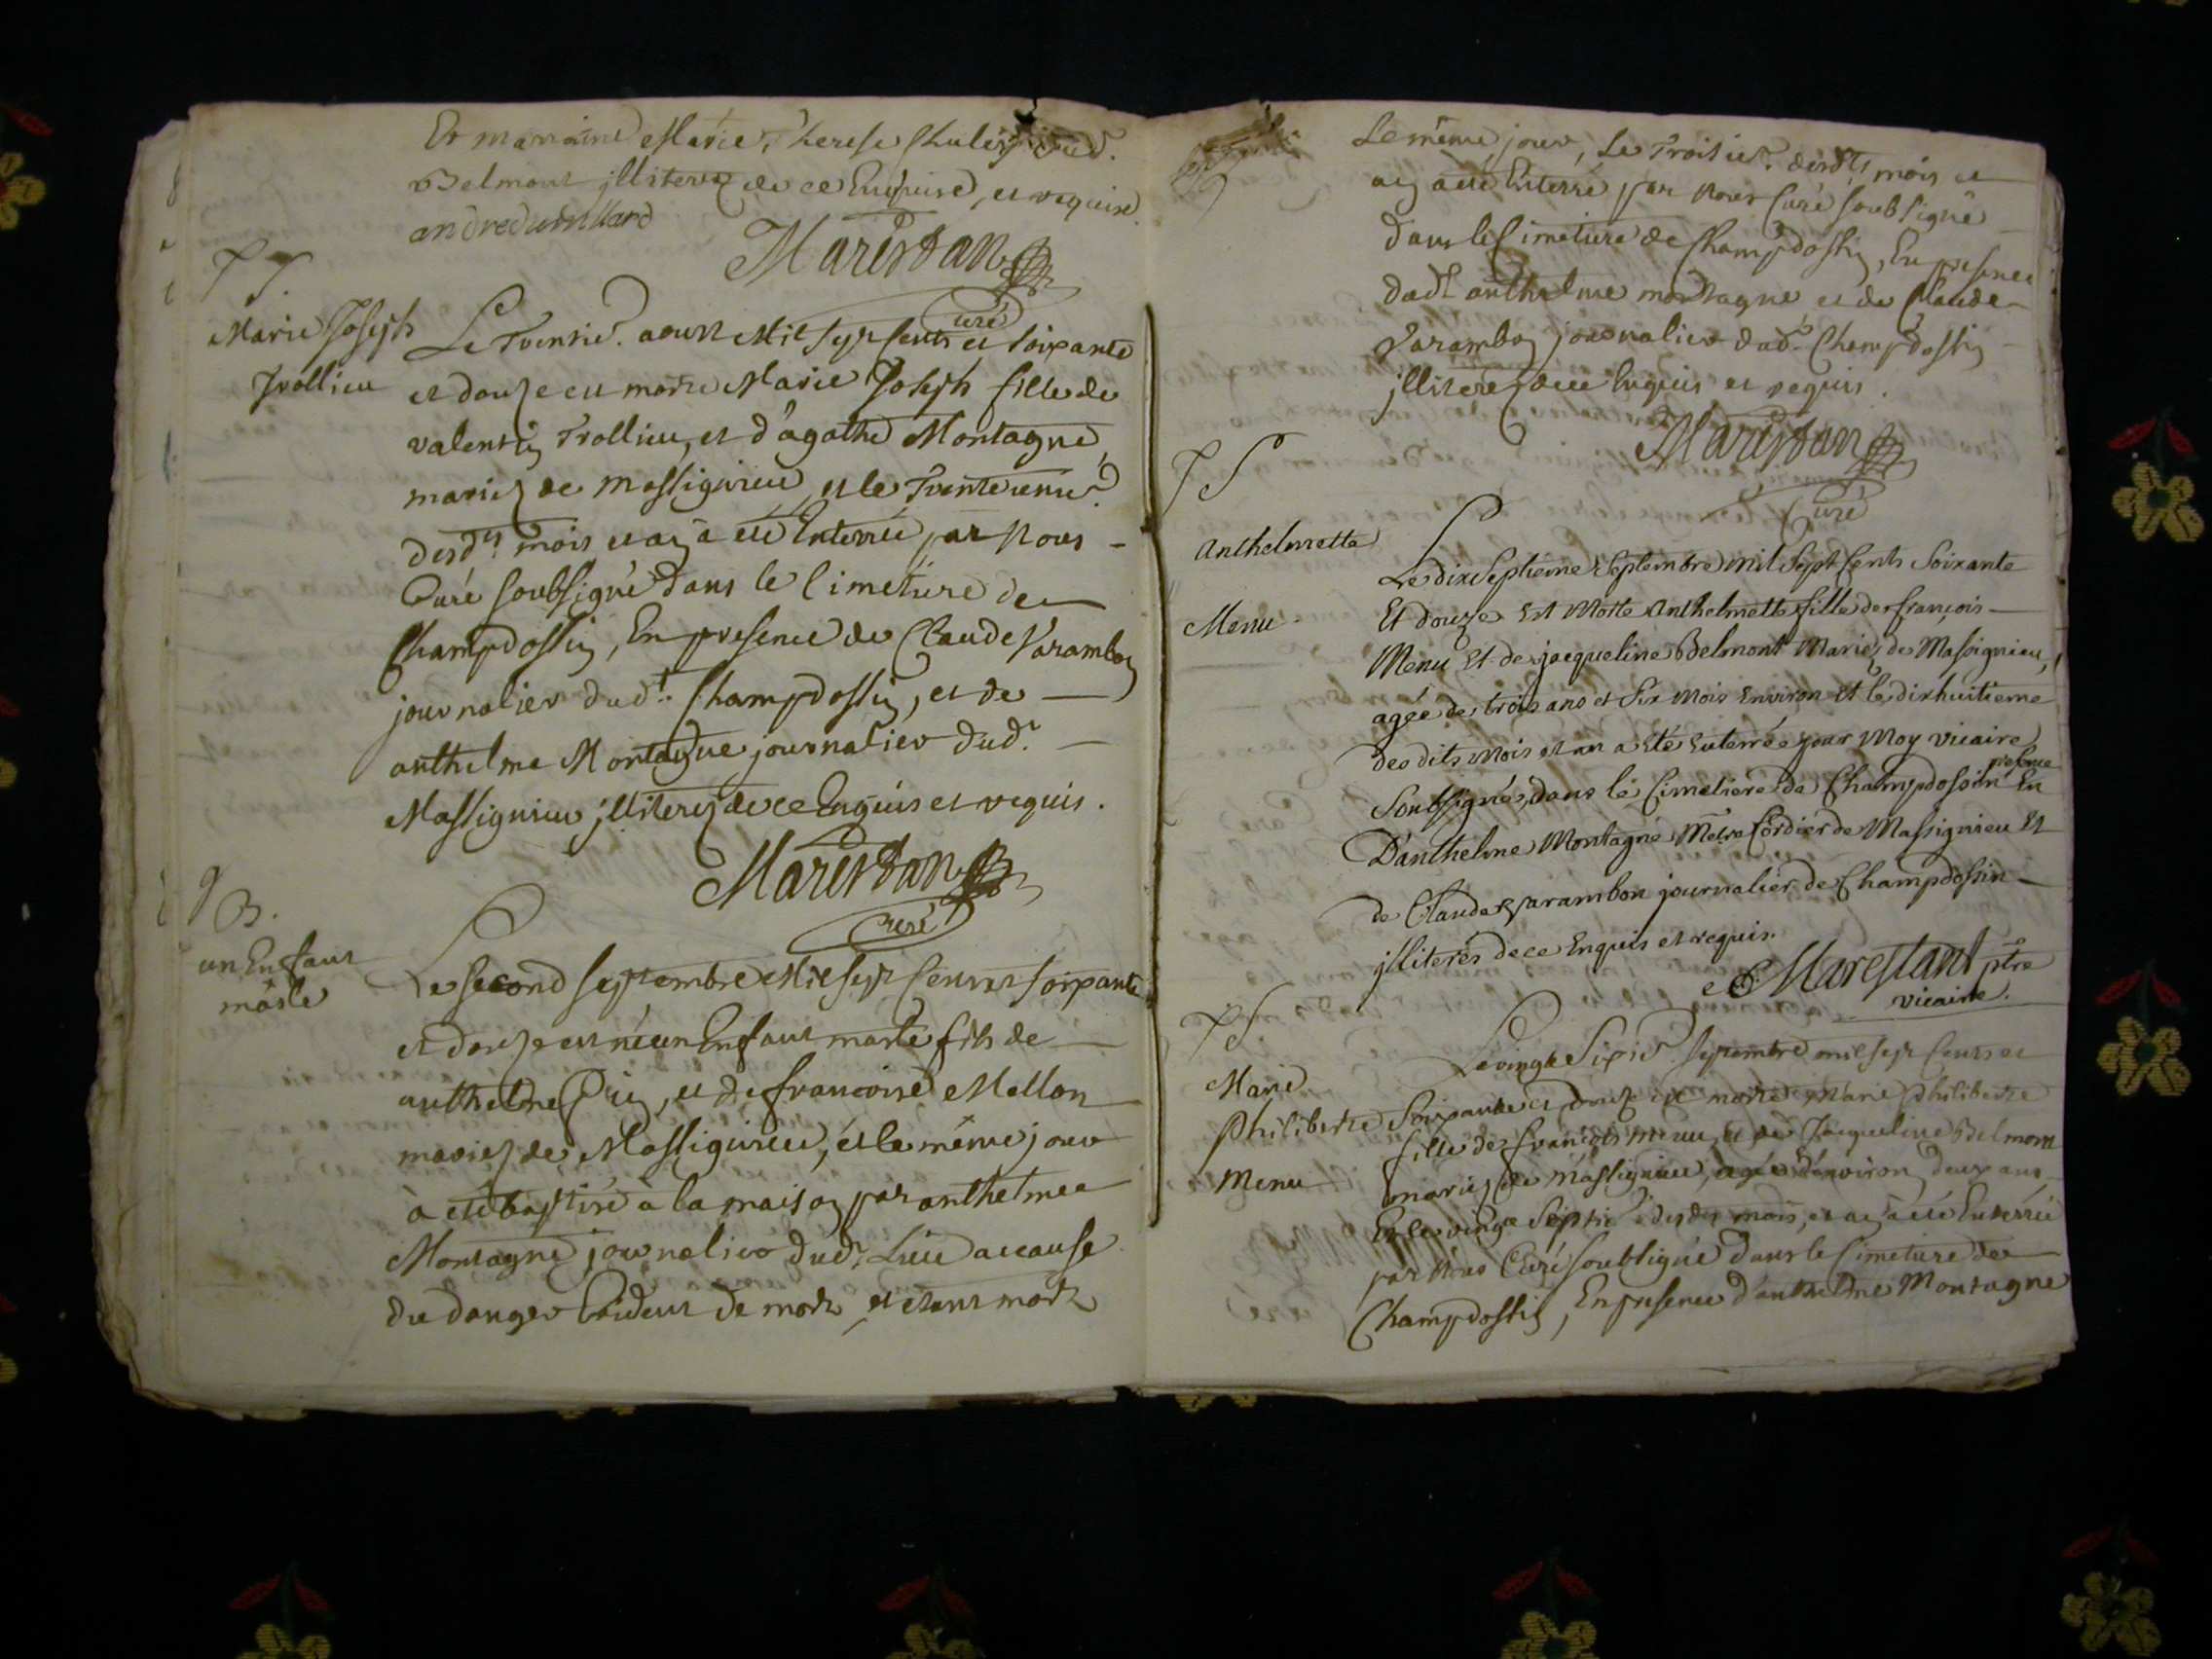 Et marraine Marie Therese Chulé
Belmont jlliterez de ce Enquise, et requise
andredumllard
Marestan
Curé
Marie Joseph
Trollieu
Le Trentie. aoust Mil sept Cents et soixante
et douze est morte Marie Joseph fille de
valentin Trollieu, et d'agathe Montagne,
mariez de Massignieu, et le Trenteunie.
desdts mois et an a eté Enterrée par Nous
Curé soubsigné dans le Cimetiere de
Champdossin, En presence de Claude Varambon
journalier dudt Champdossin, et de
anthelme Montagne journalier dudt
Massignieu jlliterez de ce Enquis et requis.
Marestan
Curé
B.
un Enfant
mâsle
Le second septembre Mil sept Cents et soixante
et douze est né un Enfant masle fils de
anthelme Pin, et de francoise Mellon
mariez de Massignieu, et le même jour
a eté baptisé a la maison par anthelme
Montagne journalier dudt Lieu a cause
du danger Evident de mort, et etant mort
Le même jour, Le Troisie. desdts mois et
an a eté Enterré par Nous Curé soubsigné
dans le Cimetiere de Champdossin, En presence
dudt anthelme montagne et de Claude
Varambon journalier dudt Champdossin
jlliterez de ce Enquis et requis.
Marestan
Curé
Anthelmette
Menu
Le dix Septième Septembre mil Sept Cents Soixante
Et douze Est Morte Anthelmette fille de françois
Menu Et de jacqueline Belmont Mariez de Massignieu,
agée de trois ans et Six Mois Environ Et le dixhuitieme
des dits Mois et an a Eté Enterrée par Moy vicaire
Soubsigné, dans le Cimetiere de Champdossin En presence
D'anthelme Montagne Metre Cordier de Massignieu Et
de Claude Varambon journalier de Champdossin
jlliterés de ce Enquis et requis.
Marestant ptre
vicaire.
Marie
Philiberte
Menu
Le vingt Sixie. septembre mil sept Cents et
Soixante et douze est morte Marie Philiberte
fille de françois menu, et de Jacqueline Belmont
mariez de Massignieu, agée d'environ deux ans
Et le vingt Septie. desdts mois, et an a eté Enterrée
par Nous Curé soubsigné dans le Cimetiere de
Champdossin, En presence d'anthelme Montagne